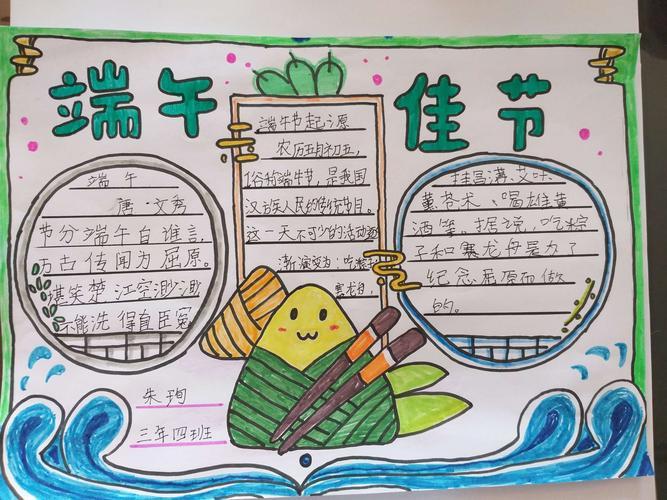 端午佳节
端午
唐·文秀
节分端午自谁言，
万古传闻为屈原。
堪笑楚江空渺渺
不能洗得直臣冤
端午节起源
农历五月初五，
俗称端午节，是我国
汉族人民的传统节日。
这一天不可少的活动逐
渐演变为：吃粽子
赛龙舟，
挂菖蒲、艾叶
薰苍术、喝雄黄
酒等。据说，吃粽
子和赛龙舟是为了
纪念屈原而做
的。
朱珣
三年四班